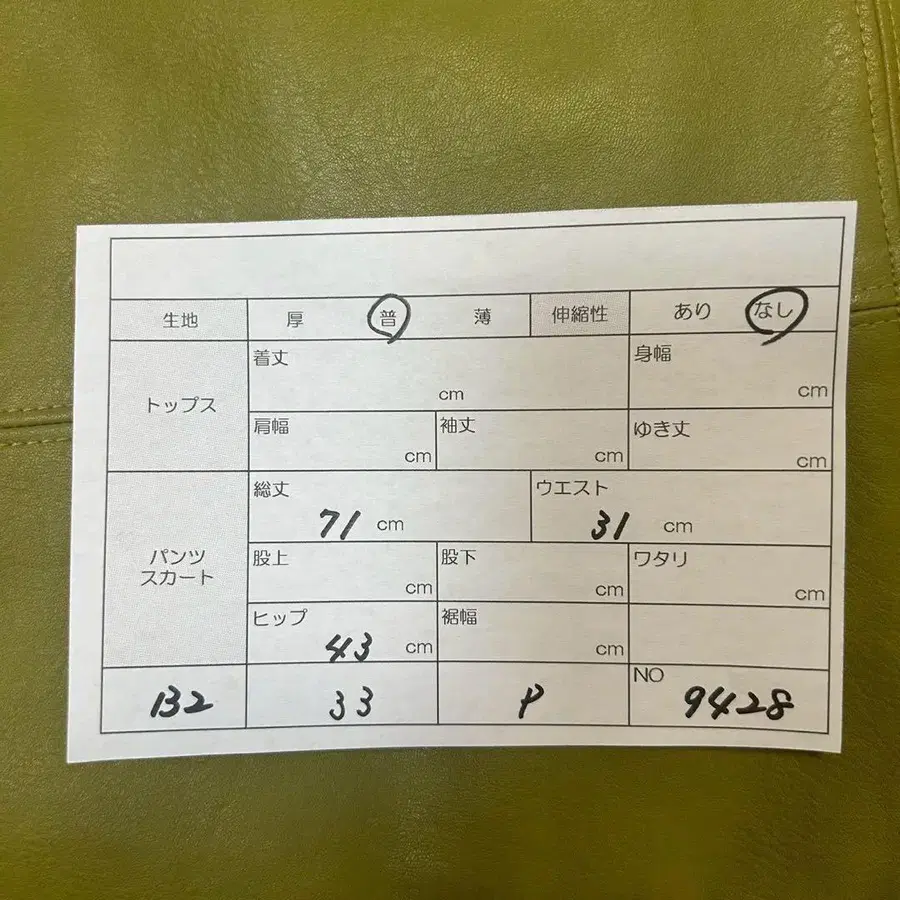 生地 厚 普 薄 伸縮性 あり なし
トップス
着丈 cm
身幅 cm
肩幅 cm
袖丈 cm
ゆき丈 cm
パンツ
スカート
総丈 71 cm
ウエスト 31 cm
股上 cm
股下 cm
ワタリ cm
ヒップ 43 cm
裾幅 cm
B2 33 P NO 9428